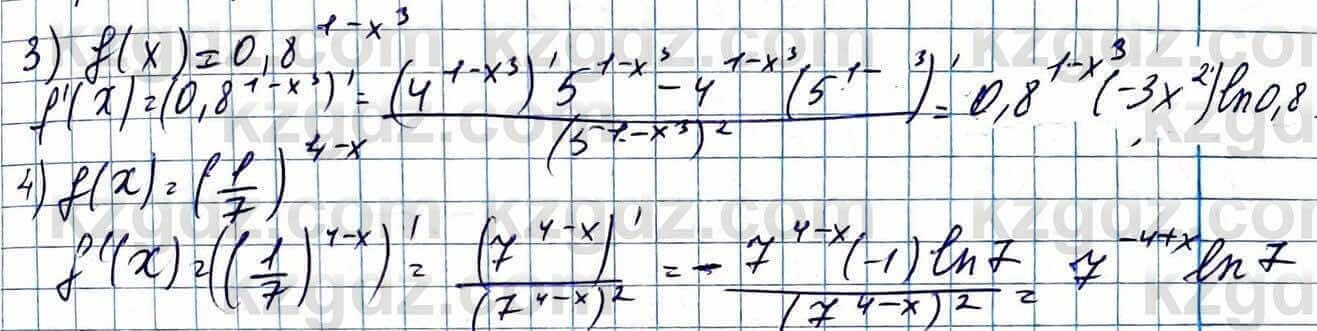 3) f(x) = 0,8^{1-x^3}
f'(x) = (0,8^{1-x^3})' = \frac{(4^{1-x^3})' 5^{1-x^3} - 4^{1-x^3} (5^{1- ^3})'}{(5^{1-x^3})^2} = 0,8^{1-x^3} (-3x^2) ln 0,8
4) f(x) = (\frac{1}{7})^{4-x}
f'(x) = ((\frac{1}{7})^{4-x})' = \frac{(7^{4-x})'}{(7^{4-x})^2} = - \frac{7^{4-x} (-1) ln 7}{(7^{4-x})^2} = 7^{-4+x} ln 7
kzgdz.com